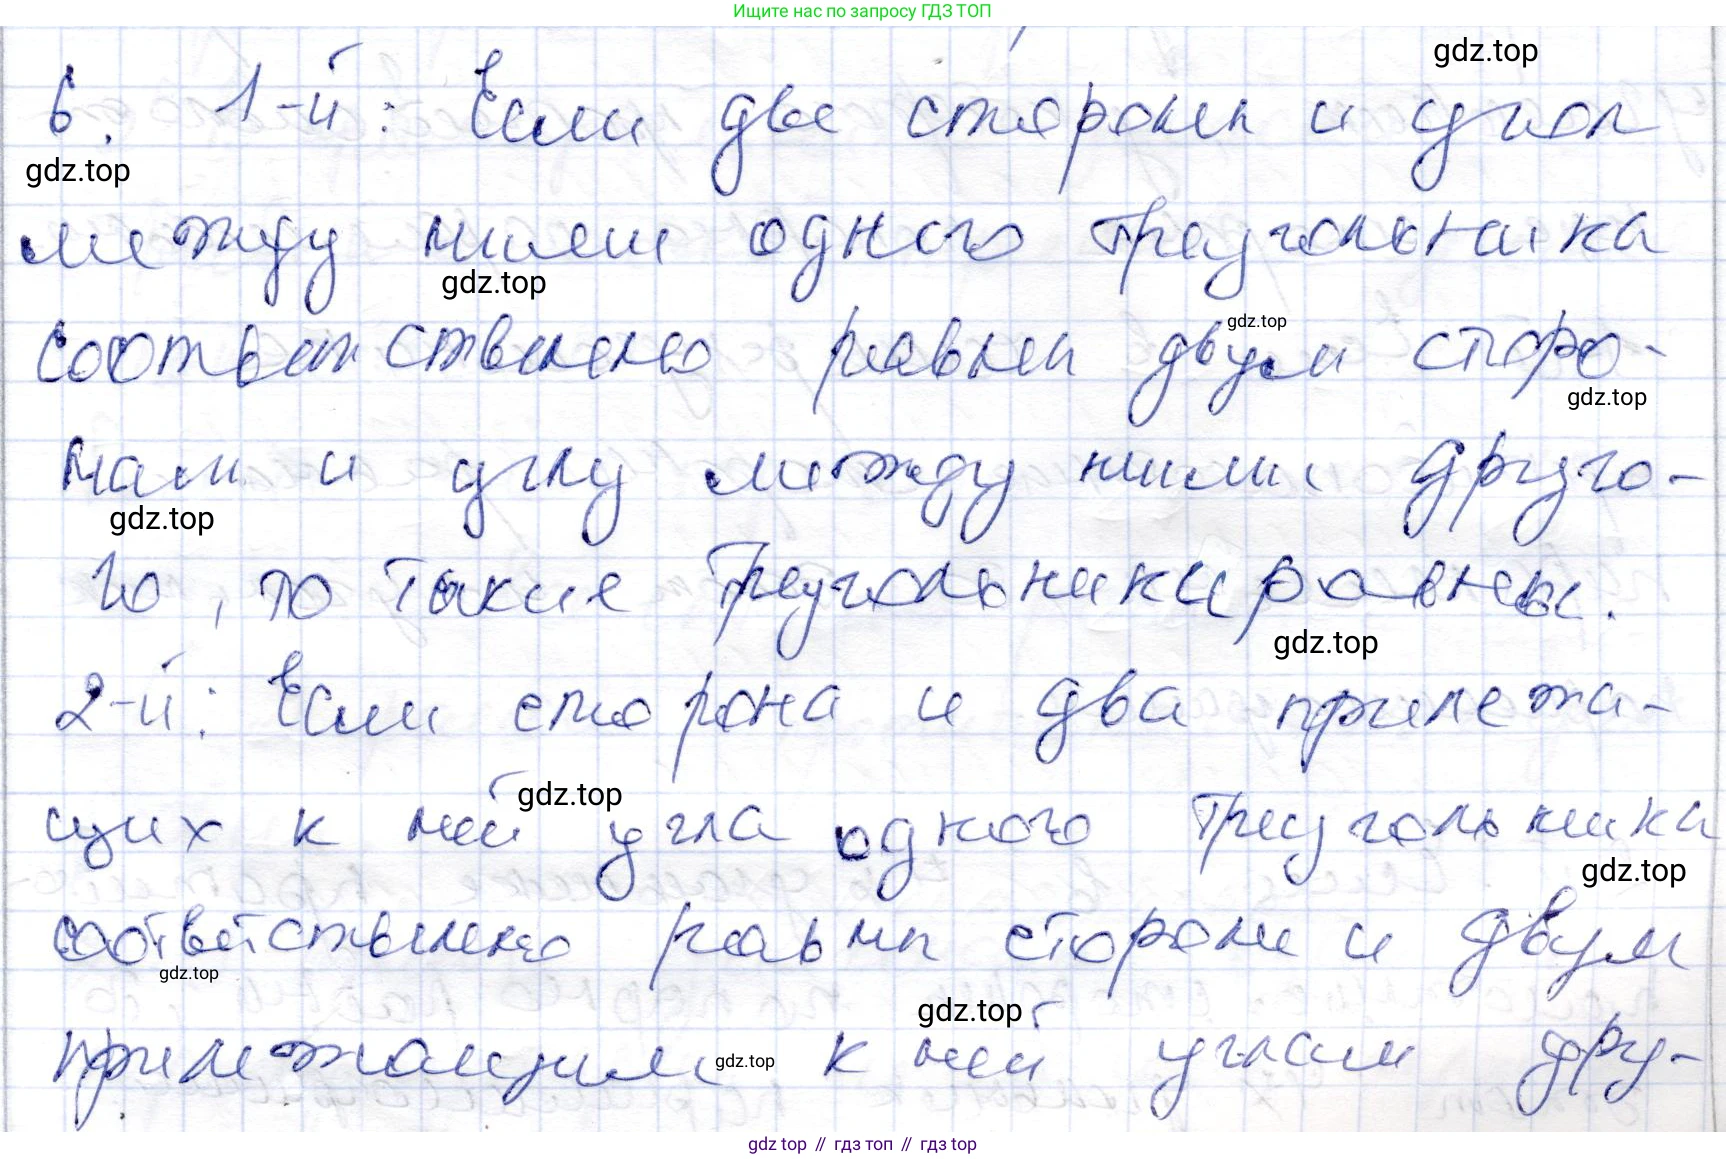 Ищите нас по запросу ГДЗ ТОП
gdz.top
6. 1-й: Если две стороны и угол
gdz.top
между ними одного треугольника
gdz.top
соответственно равны двум сторо-
gdz.top
gdz.top
нам и углу между ними друго-
gdz.top
го, то такие треугольники равны.
gdz.top
2-й: Если сторона и два прилежа-
gdz.top
щих к ней угла одного треугольника
gdz.top
соответственно равны стороне и двум
gdz.top
gdz.top
прилежащим к ней углам дру-
gdz.top
gdz top // гдз топ // гдз top